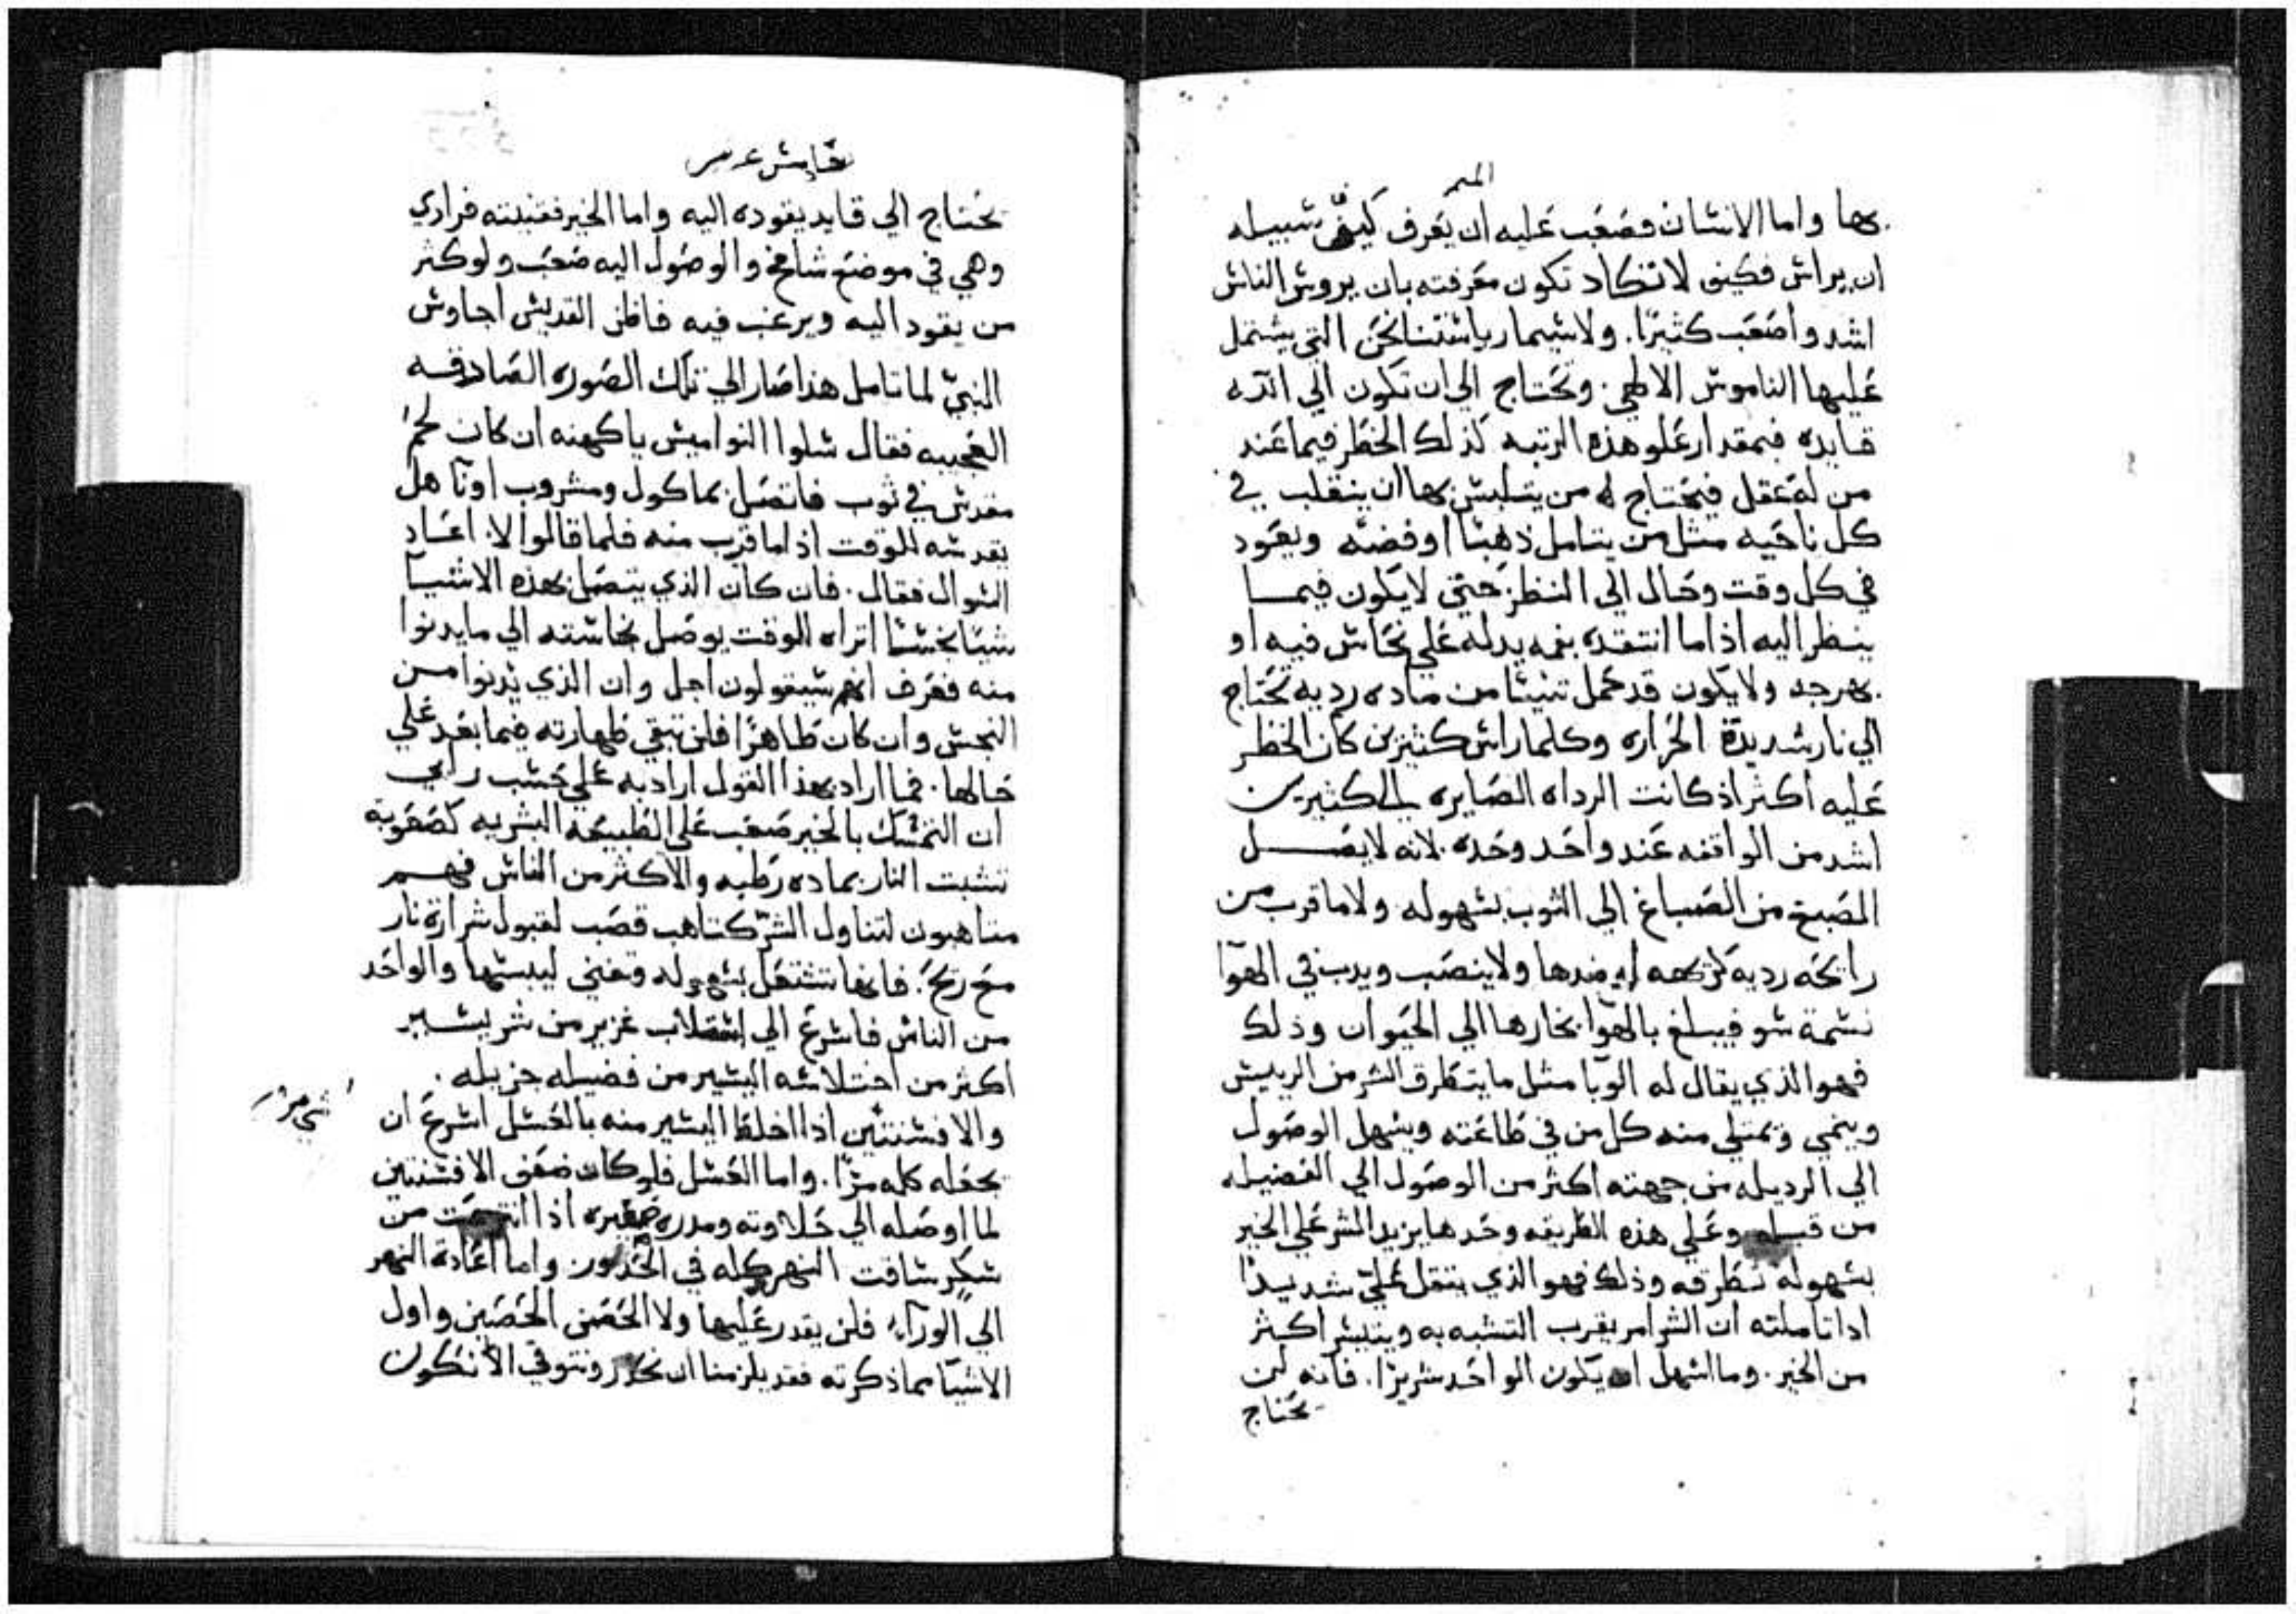 الميمر
بها واما الانسان فصَعَب عَليه ان يَعرف كيف سبيله
ان يراس فكيف لا تكاد تكون مَعرفته بان يروس الناس
اشد واصَعَب كثيرًا. ولاسيما رياستنا نحَن التي يشتمل
عَليها الناموس الالهي. وتحَتاج الي ان تكون الي الله
قايده فبمقدار عَلو هذه الرتبه كذلك الخطر فيما عَند
من له عَقل فيحَتاج له من يتلبس بها ان ينقلب في
كل ناحَيه مثل من يتامل ذهبًا او فضه ويعَود
في كل وقت وحَال الي النظر حَتي لا يكون فيما
ينظر اليه اذا ما انتقده نغمه يدله عَلي نحَاس فيه او
بهرجه ولا يكون قد حَمل شيئًا من ماده رديه تحَتاج
الي نار شديدة الحَراره وكلما راس كثيرين كان الخطر
عَليه اكثر اذ كانت الرداه الصَايره الي الكثيرين
اشد من الواقفه عَند واحَد وحَده. لانه لا يصَل
الصَبغ من الصَباغ الي الثوب بسهوله ولا ما قرب من
رايحَه رديه كريهه او ضدها ولا ينصَب ويدب في الهوآ
نسمة سو فيبلغ بالهوآ بخارها الي الحَيوان وذلك
فهو الذي يقال له الوبا مثل ما يتطرق الشر من الرييس
وينمي وتمتلي منه كل من في طاعَته ويسهل الوصَول
الي الرديله من جهته اكثر من الوصَول الي الفضيله
من قبله وعَلي هذه الطريقه وحَدها يزيد الشر عَلي الخير
بسهوله تطرقه وذلك فهو الذي يثقل عَليّ شديدًا
اذا تاملته ان الشر امر يقرب التشبه به ويتيسر اكثر
من الخير. وما اسهل ان يكون الواحَد شريرًا. فانه لن
يحَتاج
خامس عشر
يحَتاج الي قايد يقوده اليه واما الخير فقنيته فرادي
وهي في موضع شامخ والوصَول اليه صَعَب ولو كثر
من يقود اليه ويرغب فيه فاظن القديس اجاوس
النبيّ لما تامل هذا صَار الي تلك الصَوره الصَادقه
العَجيبه فقال سلوا النواميس ياكهنه ان كان لحَم
مقدس في ثوب فاتصَل بماكول ومشروب او نآ هل
يقدسه للوقت اذا ما قرب منه فلما قالوا لا. اعَاد
السوال فقال. فان كان الذي يتصَل بهذه الاشيا
شيًا نجسًا اتراه الوقت يوصَل نجاسته الي ما يدنوا
منه فعَرف انهم سيقولون اجل وان الذي يدنوا من
النجس وان كان طاهرًا فلن تبقي طهارته فيما بعَد عَلي
حَالها. فما اراد بهذا القول اراد به عَلي حَسب رايي
ان التمسك بالخير صَعَب عَلي الطبيعَة البشريه كصَعَوبة
تشبت النار بماده رَطبه والاكثر من الناس فهم
متاهبون لتناول الشرّ كتاهب قصَب لقبول شرارة نار
مع ريحَ. فانها تشتعَل بسهوله وتفني ليبسها والواحَد
من الناس فاسرع الي اختلاب غزير من شر يسير
اكثر من اختلاسه اليسير من فضيله جزيله.
والافسنتين اذا اخلط اليسير منه بالعَسل اسرع ان
يجعَله كله مرًا. واما العَسل فلو كان ضعَف الافسنتين
لما اوصَله الي حَلاوته ومدره صَغيره اذا انتزعَت من
سكر ساقت النهر كله في الحَدور واما اعَادة النهر
الي الورآء فلن يقدر عَليها ولا الحَصَن الحَصَين واول
الاشيآ مما ذكرته فقد يلزمنا ان نحَذر ونتوقي الا نكون
شي مر